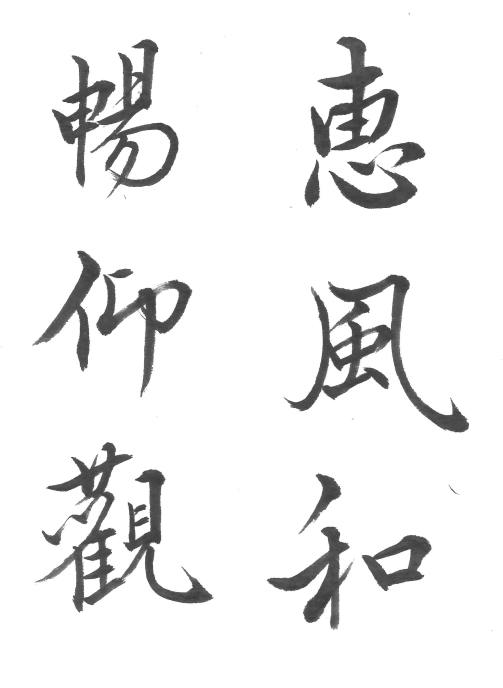 恵風和
暢仰觀